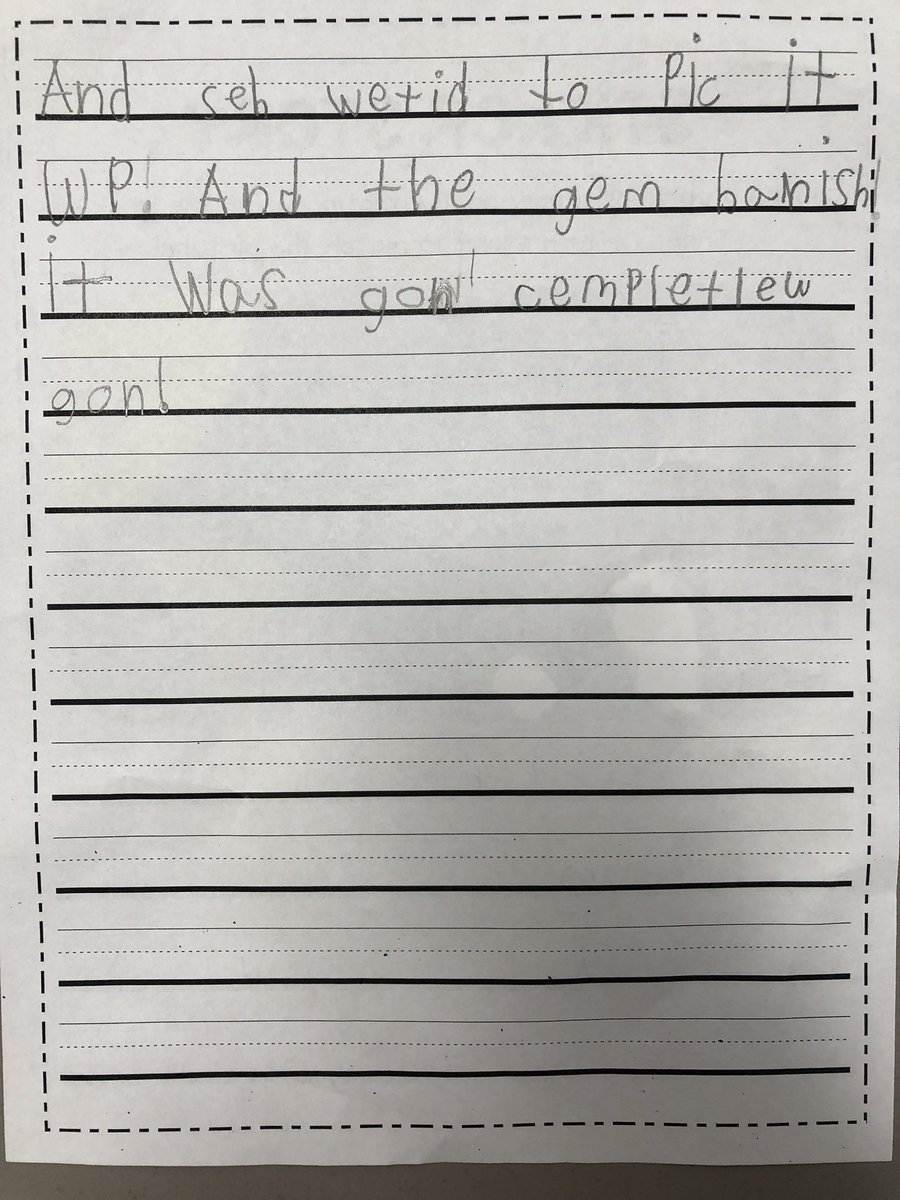 And seh wetid to Pic it
WP! And the gem banish!
it was gon! cempletlew
gon!